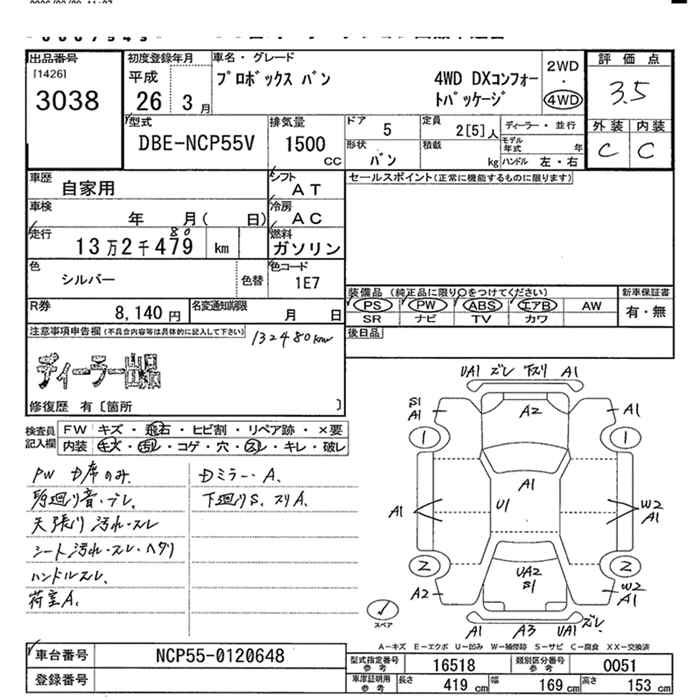 出品番号
[1426]
3038
初度登録年月
平成
26 3月
車名・グレード
プロボックス バン 4WD DXコンフォー
トパッケージ
2WD
・
4WD
評価点
3.5
外装 内装
C C
型式
DBE-NCP55V
排気量
1500
CC
ドア 5
形状
バン
定員 2[5]人
積載 kg
ディーラー・並行
モデル年式 年
ハンドル 左・右
車歴
自家用
シフト
AT
セールスポイント(正常に機能するものに限ります)
車検
年 月( 日)
冷房
AC
走行
80
13万2千479 km
燃料
ガソリン
色
シルバー
色替
色コード
1E7
装備品(純正品に限り○をつけてください)
PS PW ABS エアB AW
SR ナビ TV カワ
新車保証書
有・無
R券
8,140円
名変通知期限
月 日
後日品
注意事項申告欄(不具合内容等は具体的に記入して下さい)
132480km
ディーラー出品
修復歴 有〔箇所 〕
検査員
記入欄
FW キズ・飛石・ヒビ割・リペア跡・×要
内装 キズ・汚れ・コゲ・穴・スレ・キレ・破レ
PW D席のみ
天張り汚れ・スレ
シート汚れ・スレ・ヘタリ
ハンドルスレ
荷室A.
Dミラー・A.
下廻りS.スリA.
UA1 ズレ 下スリ A1
S1
A1
A2
A1
1
1
A1
A1
U1
W2
A1
2
2
UA2
S1
A2
W2
A1
スペア
A1 A3 UA1 ズレ
A-キズ E-エクボ U-凹み W-補修跡 S-サビ C-腐食 XX-交換済
車台番号
NCP55-0120648
登録番号
型式指定番号
参考
16518
類別区分番号
参考
0051
車庫証明用
参考
長さ 419cm 幅 169cm 高さ 153cm